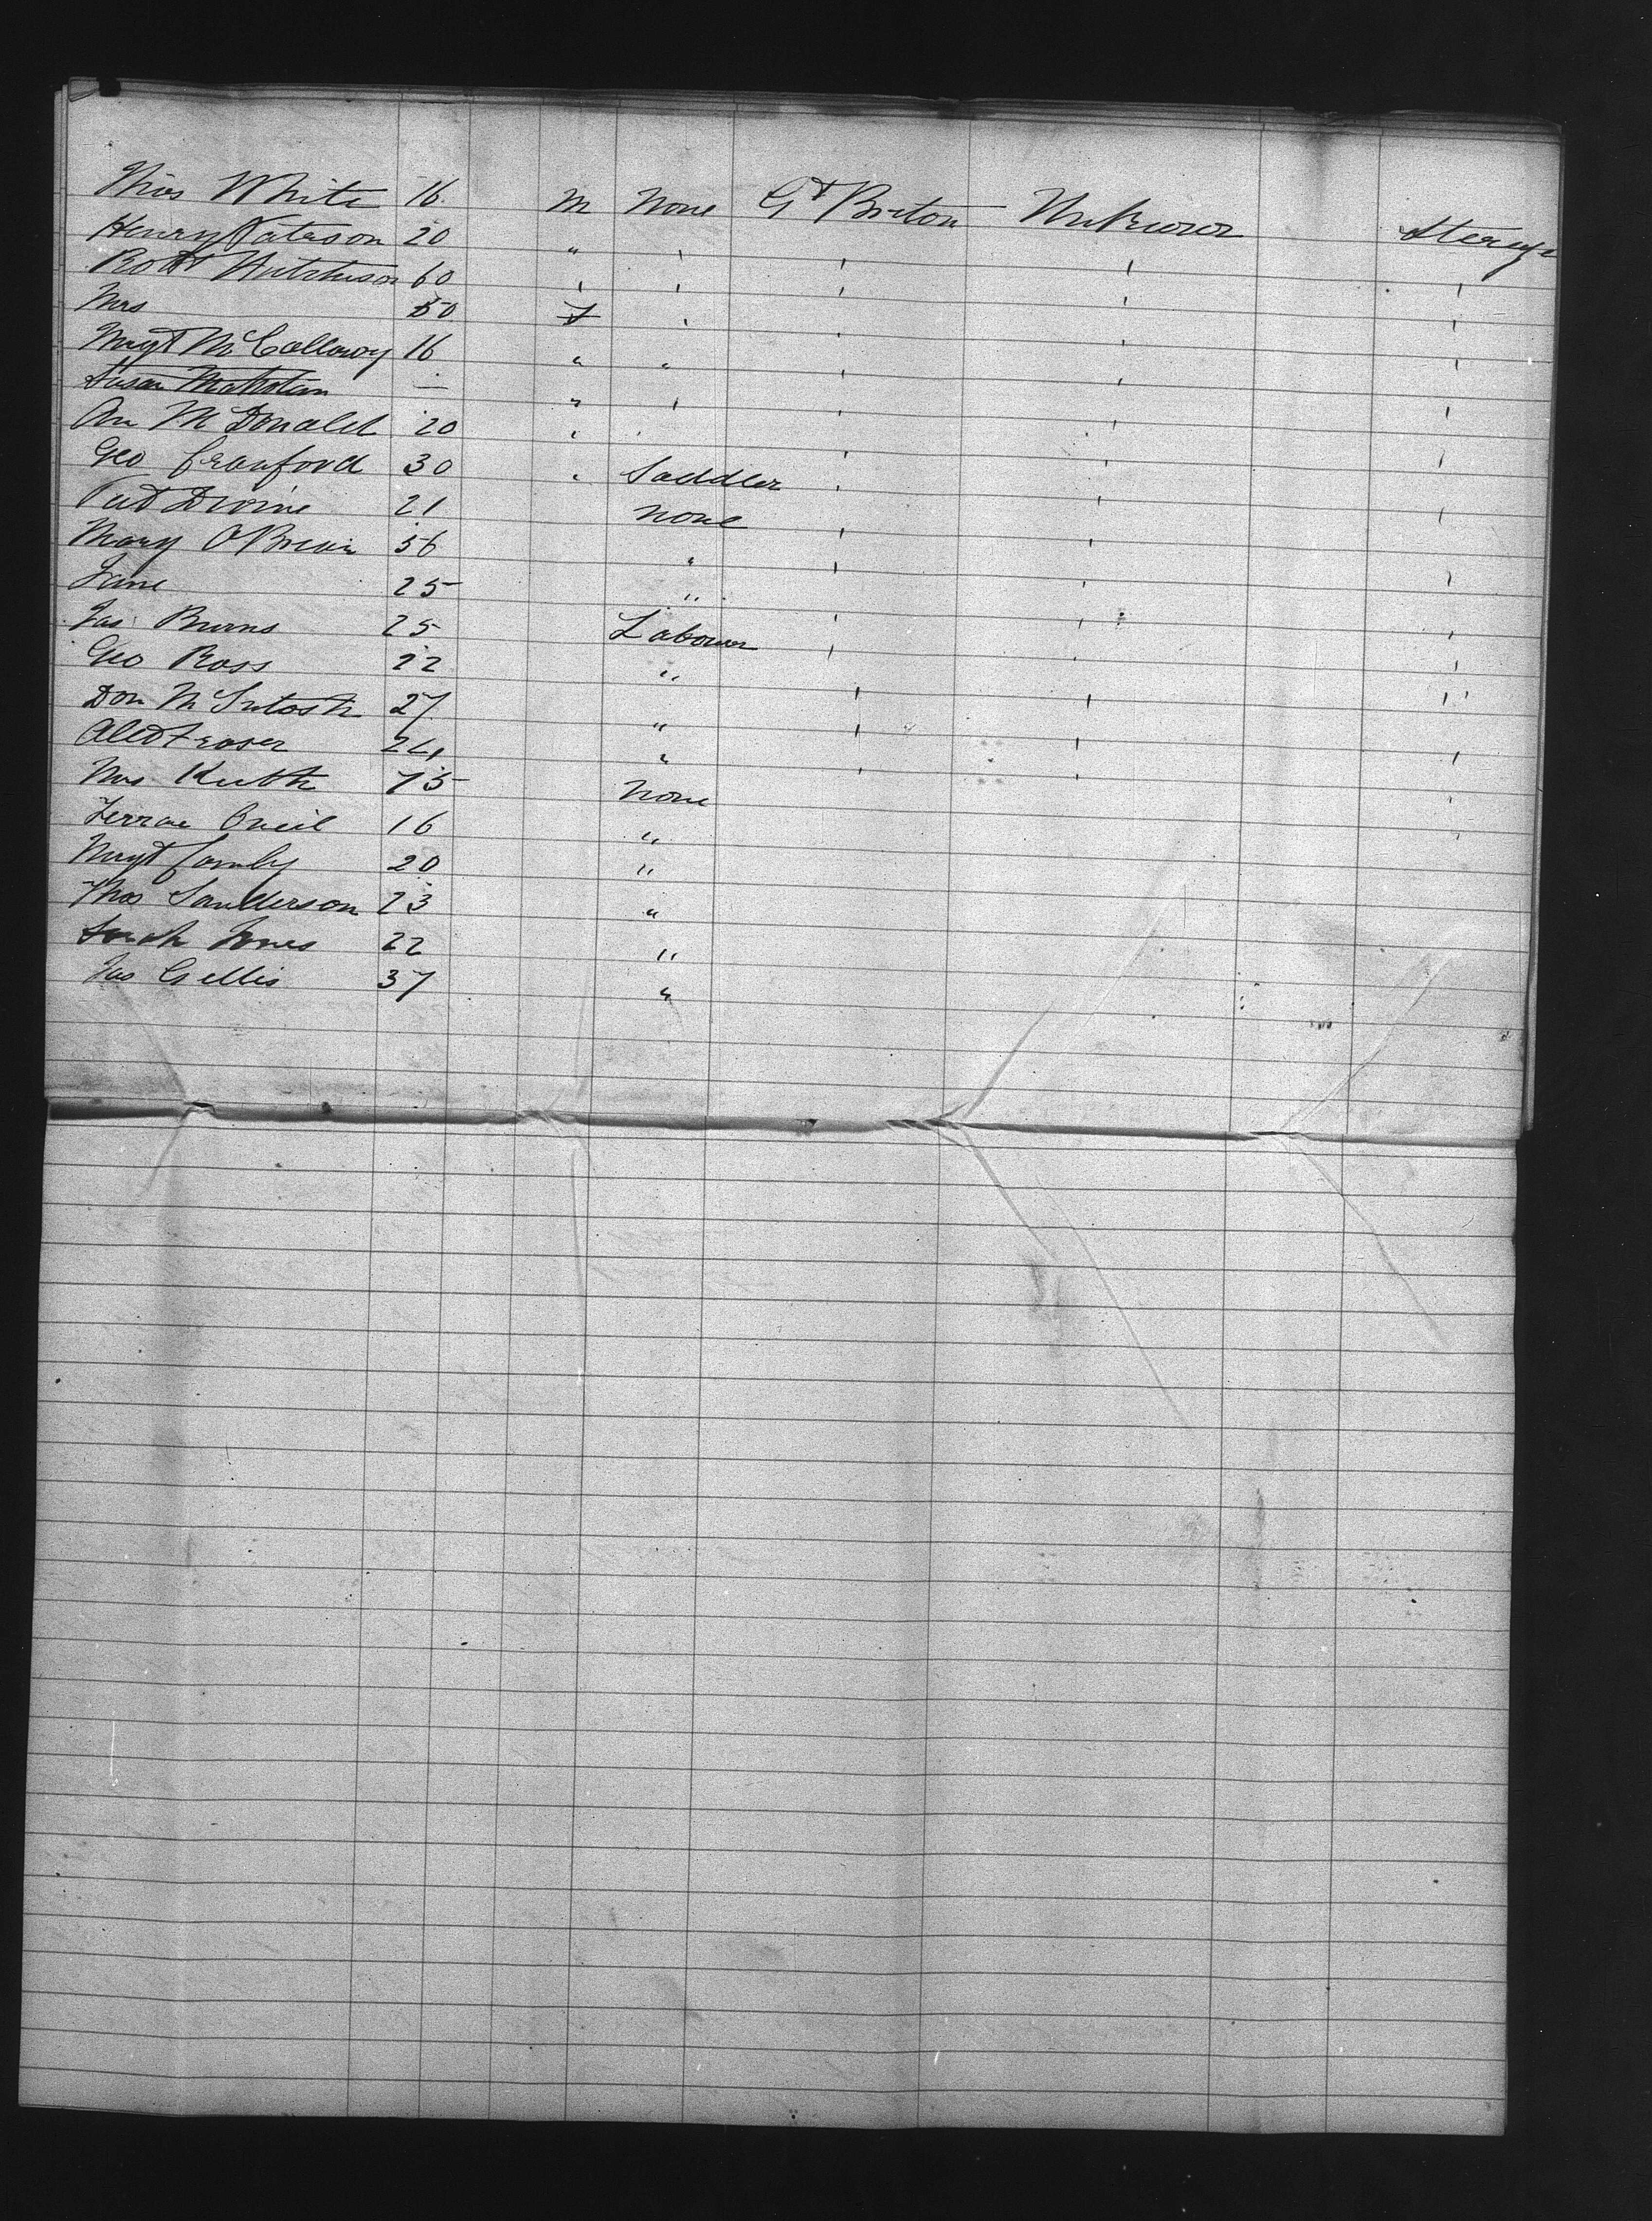 Thos White 16 M None Gt Briton Unknown Sterage
Henry Paterson 20 " " " " "
Robt Hutchison 60 " " " " "
Mrs 50 F " " " "
Magt McCallowy 16 " " " " "
Susan — " " " " "
Ann McDonald 20 " " " " "
Geo Crauford 30 " Saddler " " "
Pat Divine 21 None " " "
Mary O'Brian 56 " " " "
Jane 25 " " " "
Jas Burns 25 Labourer " " "
Geo Ross 22 " " " "
Don McIntosh 27 " " " "
Alexd Fraser 24 " " " "
Mrs Keith 75 None "
Oneil 16 "
Magt 20 "
Thos Saunderson 23 "
Sarah Jones 22 "
Jas Gellis 37 "